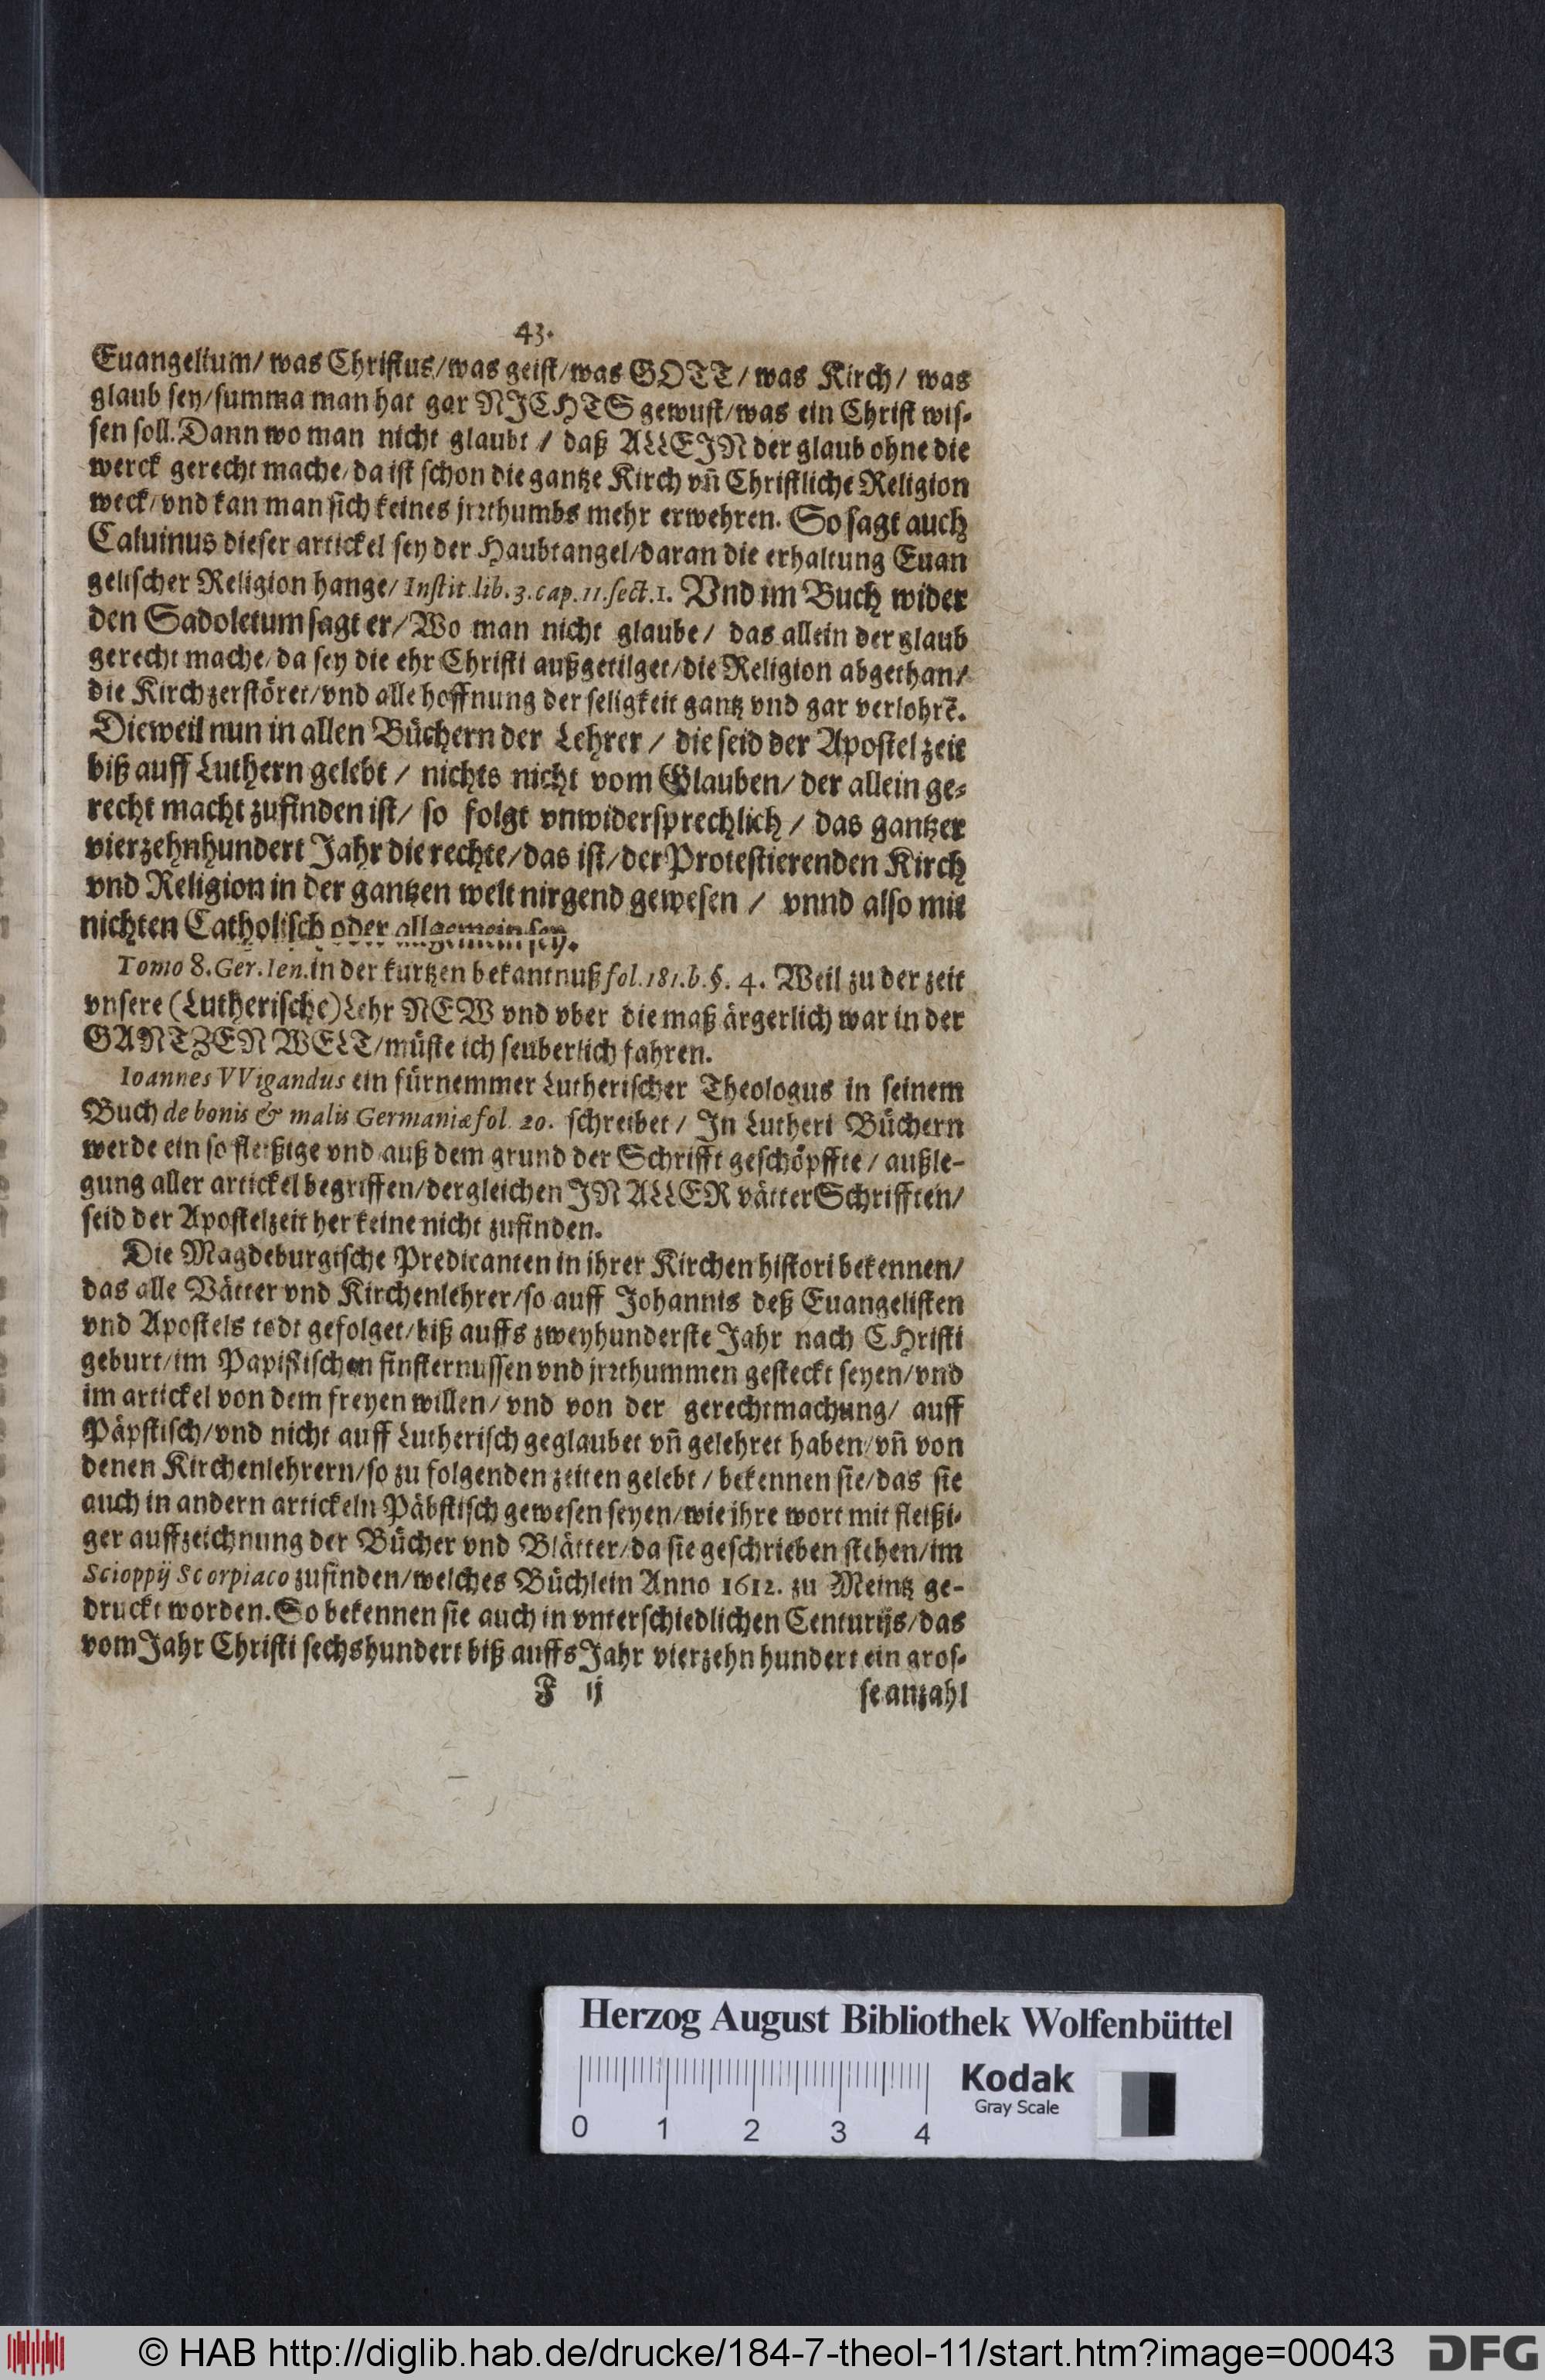 43.
Euangelium/ was Christus/was geist/was GOTT/ was Kirch/ was
glaub sey/summa man hat gar NICHTS gewust/was ein Christ wis-
sen soll. Dann wo man nicht glaubt / daß ALLEIN der glaub ohne die
werck gerecht mache/ da ist schon die gantze Kirch vn̄ Christliche Religion
weck/ vnd kan man sich keines jrꝛthumbs mehr erwehren. So sagt auch
Caluinus dieser artickel sey der Haubtangel/daran die erhaltung Euan
gelischer Religion hange/ Instit. lib. 3. cap. 11. sect. 1. Vnd im Buch wider
den Sadoletum sagt er/Wo man nicht glaube/ das allein der glaub
gerecht mache/ da sey die ehr Christi außgetilget/die Religion abgethan/
die Kirch zerstöret/vnd alle hoffnung der seligkeit gantz vnd gar verlohrē.
Dieweil nun in allen Büchern der Lehrer / die seid der Apostel zeit
biß auff Luthern gelebt / nichts nicht vom Glauben/ der allein ge-
recht macht zufinden ist/ so folgt vnwidersprechlich / das gantzer
vierzehnhundert Jahr die rechte/das ist/der Protestierenden Kirch
vnd Religion in der gantzen welt nirgend gewesen / vnnd also mit
nichten Catholisch oder allgemein sey.
Tomo 8. Ger. Ien. in der kurtzen bekantnuß fol. 181. b. §. 4. Weil zu der zeit
vnsere (Lutherische) Lehr NEW vnd vber die maß ärgerlich war in der
GANTZEN WELT/müste ich seuberlich fahren.
Ioannes VVigandus ein fürnemmer Lutherischer Theologus in seinem
Buch de bonis & malis Germaniæ fol. 20. schreibet / In Lutheri Büchern
werde ein so fleißige vnd auß dem grund der Schrifft geschöpffte / außle-
gung aller artickel begriffen/dergleichen IN ALLER vätter Schrifften/
seid der Apostelzeit her keine nicht zufinden.
Die Magdeburgische Predicanten in ihrer Kirchen histori bekennen/
das alle Vätter vnd Kirchenlehrer/so auff Johannis deß Euangelisten
vnd Apostels todt gefolget/biß auffs zweyhunderste Jahr nach CHristi
geburt/im Papistischen finsternussen vnd jrꝛthummen gesteckt seyen/vnd
im artickel von dem freyen willen/ vnd von der gerechtmachung/ auff
Päpstisch/vnd nicht auff Lutherisch geglaubet vn̄ gelehret haben/vn̄ von
denen Kirchenlehrern/so zu folgenden zeiten gelebt / bekennen sie/das sie
auch in andern artickeln Päbstisch gewesen seyen/wie ihre wort mit fleißi-
ger auffzeichnung der Bücher vnd Blätter/da sie geschrieben stehen/im
Scioppij Scorpiaco zufinden/welches Büchlein Anno 1612. zu Meintz ge-
druckt worden. So bekennen sie auch in vnterschiedlichen Centurijs/das
vom Jahr Christi sechshundert biß auffs Jahr vierzehn hundert ein gros-
F ij se anzahl
Herzog August Bibliothek Wolfenbüttel
Kodak
Gray Scale
0 1 2 3 4
© HAB http://diglib.hab.de/drucke/184-7-theol-11/start.htm?image=00043
DFG